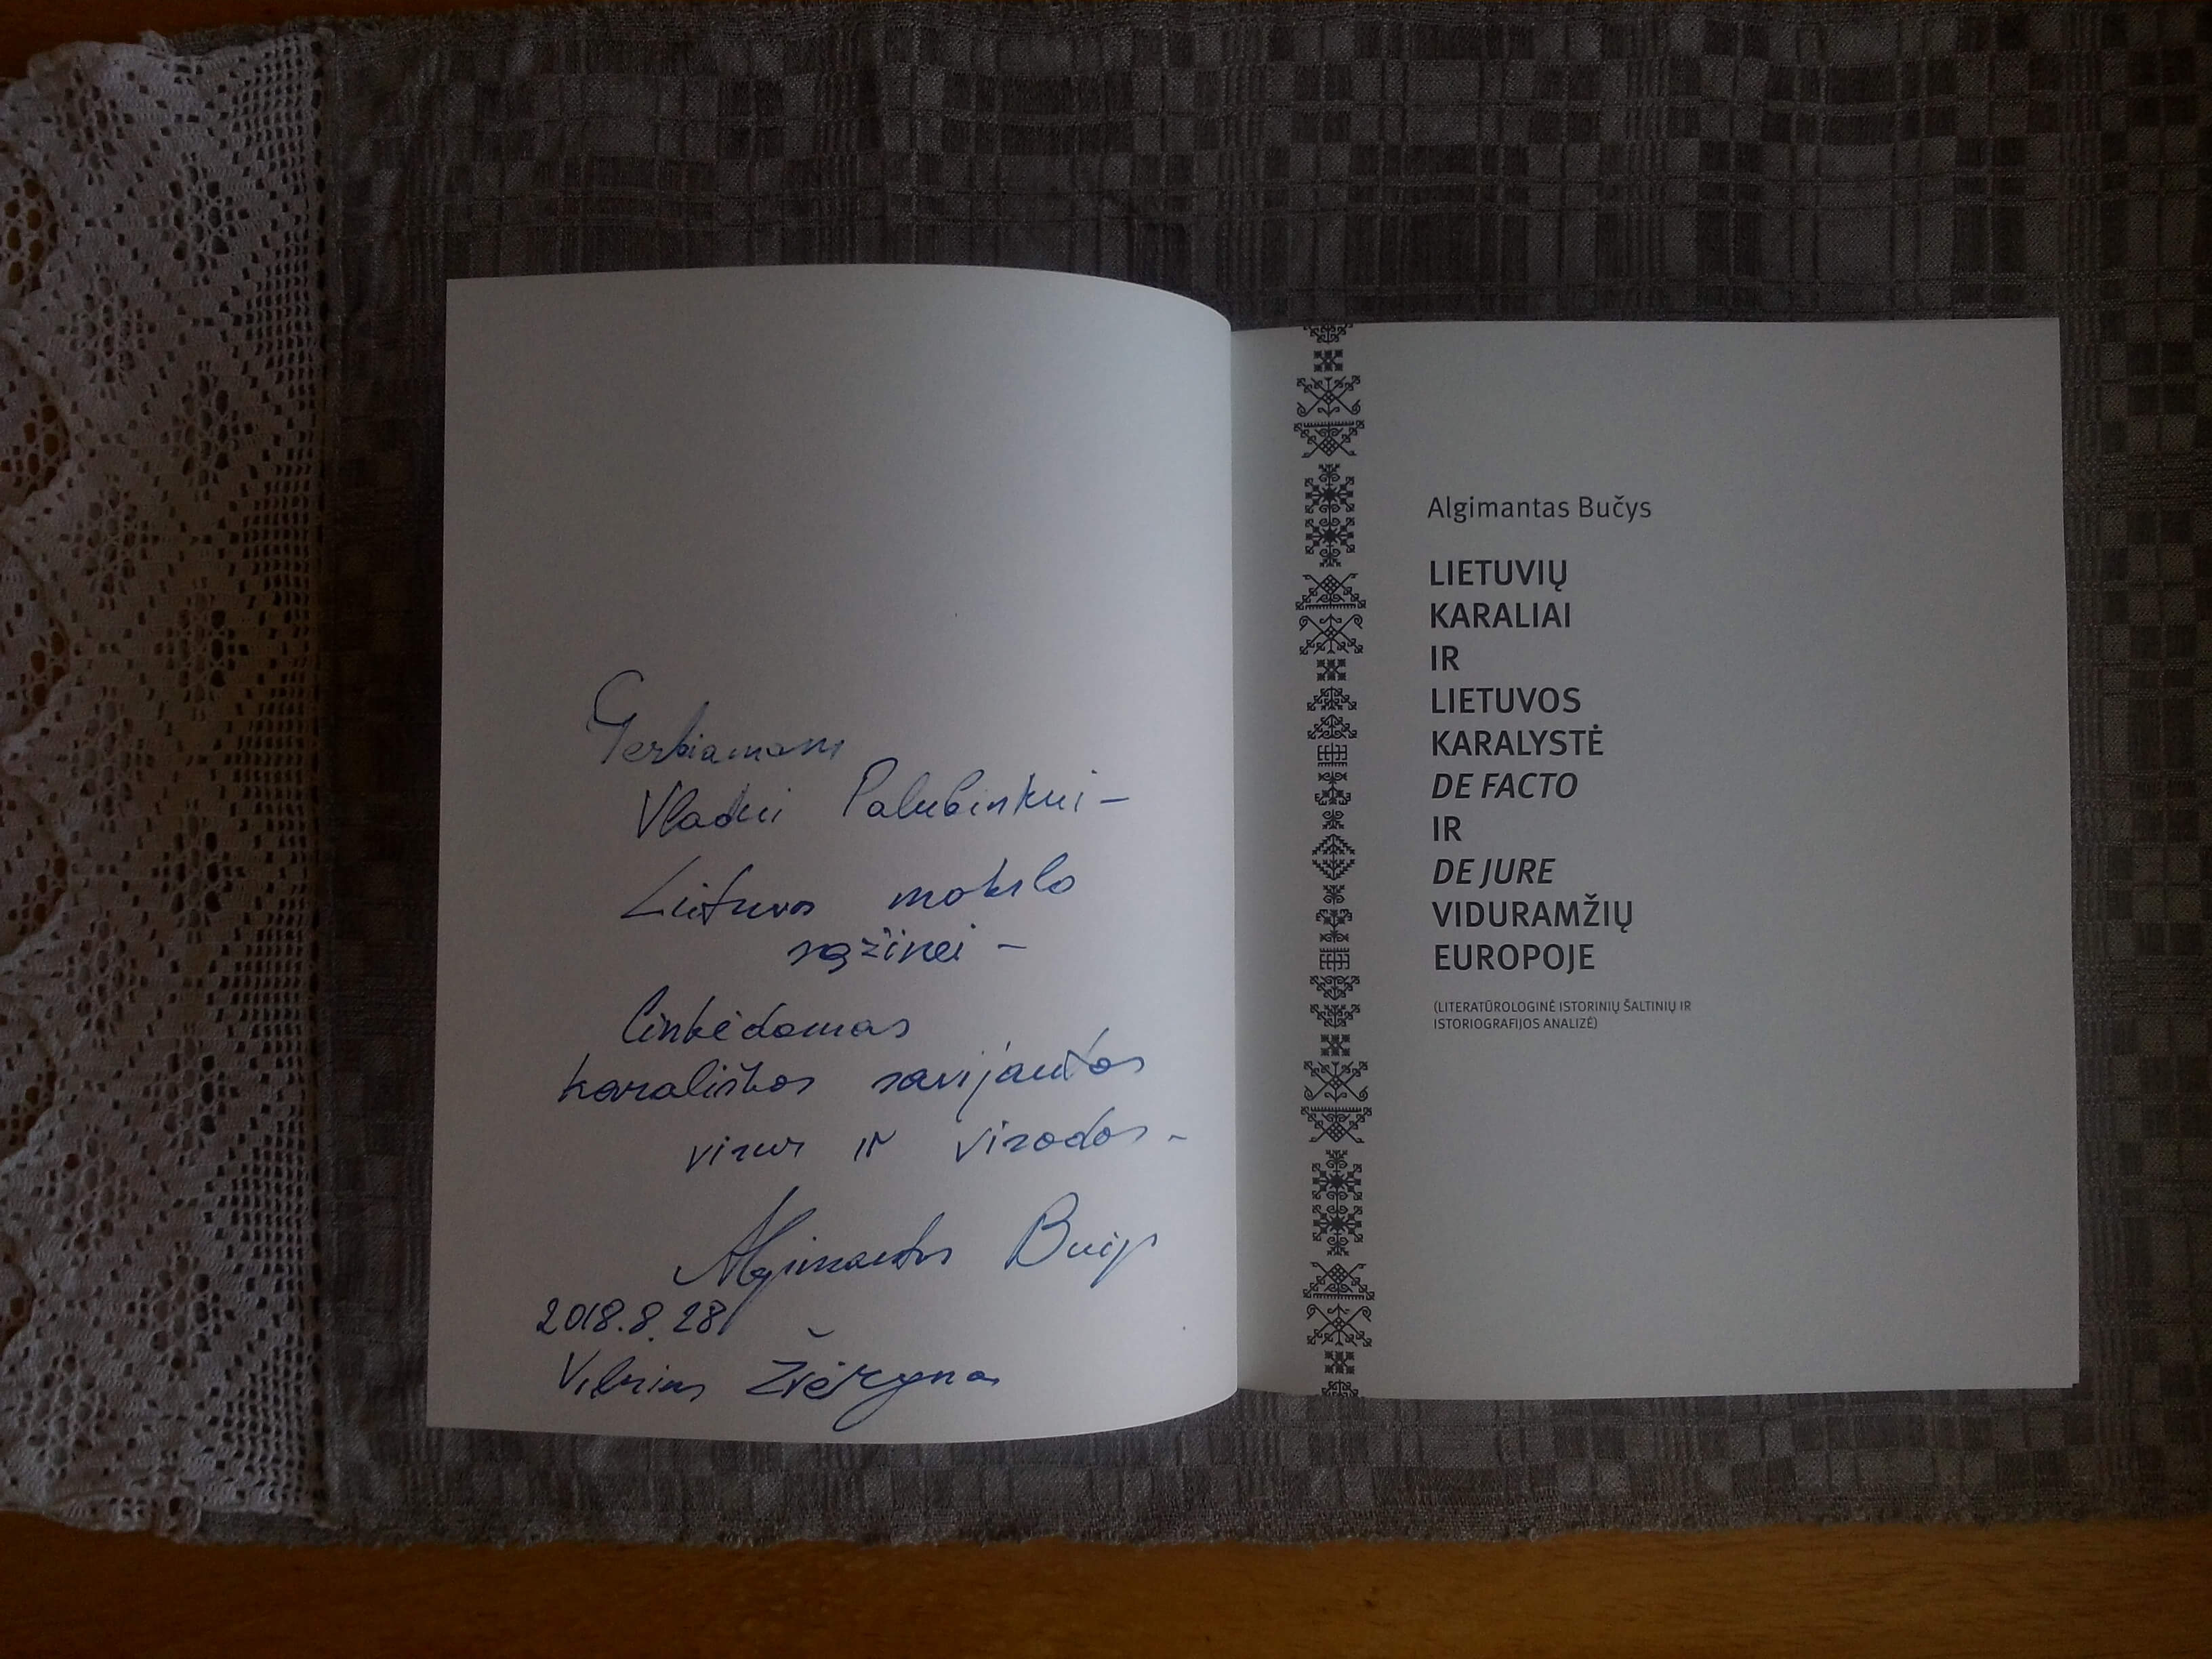 Gerbiamam
Vladui Palubinskui –
Lietuvos mokslo
sąžinei –
linkėdamas
karališkos savijautos
visur ir visados –
Algimantas Bučys
2018.8.28
Vilnius Žvėrynas
Algimantas Bučys
LIETUVIŲ
KARALIAI
IR
LIETUVOS
KARALYSTĖ
DE FACTO
IR
DE JURE
VIDURAMŽIŲ
EUROPOJE
(LITERATŪROLOGINĖ ISTORINIŲ ŠALTINIŲ IR
ISTORIOGRAFIJOS ANALIZĖ)